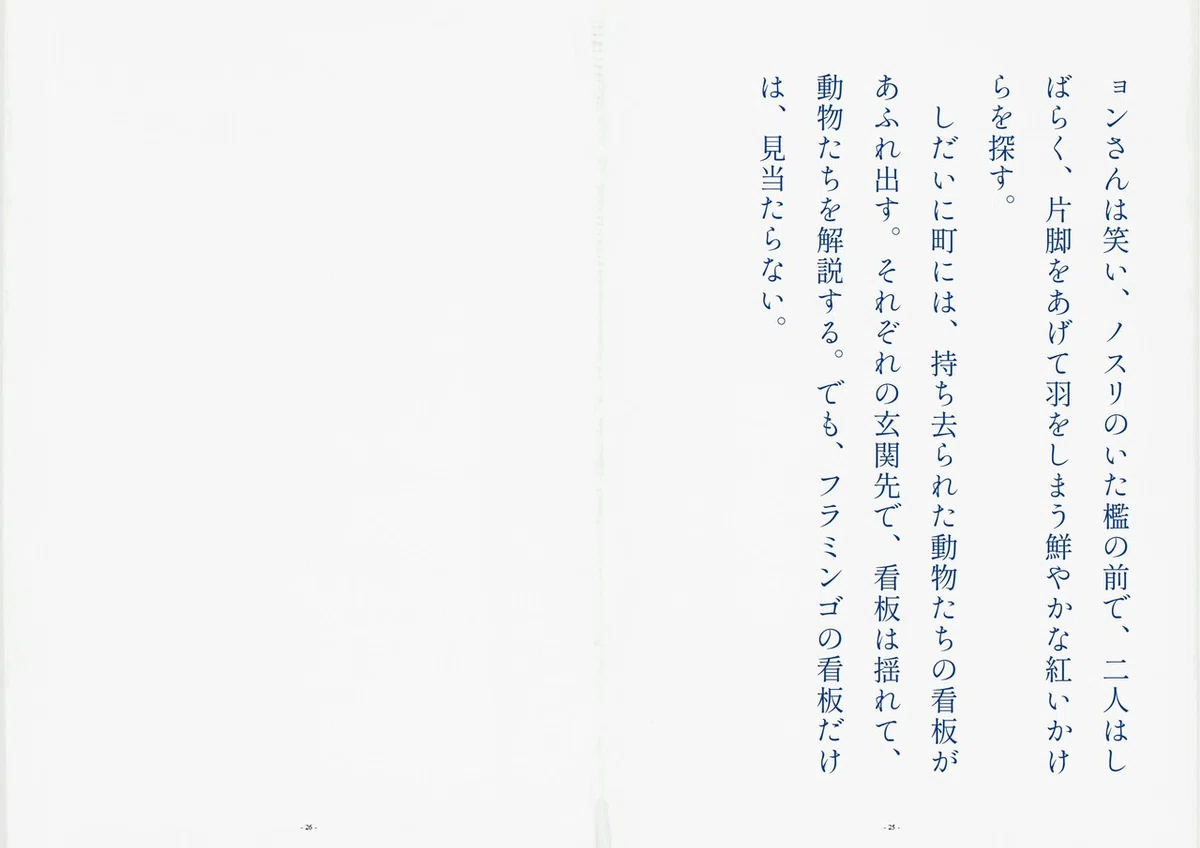 ョンさんは笑い、ノスリのいた檻の前で、二人はし
ばらく、片脚をあげて羽をしまう鮮やかな紅いかけ
らを探す。
　しだいに町には、持ち去られた動物たちの看板が
あふれ出す。それぞれの玄関先で、看板は揺れて、
動物たちを解説する。でも、フラミンゴの看板だけ
は、見当たらない。
- 25 -
- 26 -